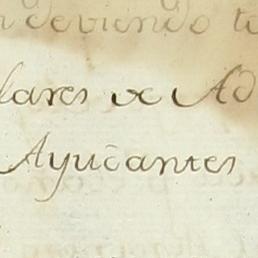 deviendo te
lares de Ad
Ayudantes